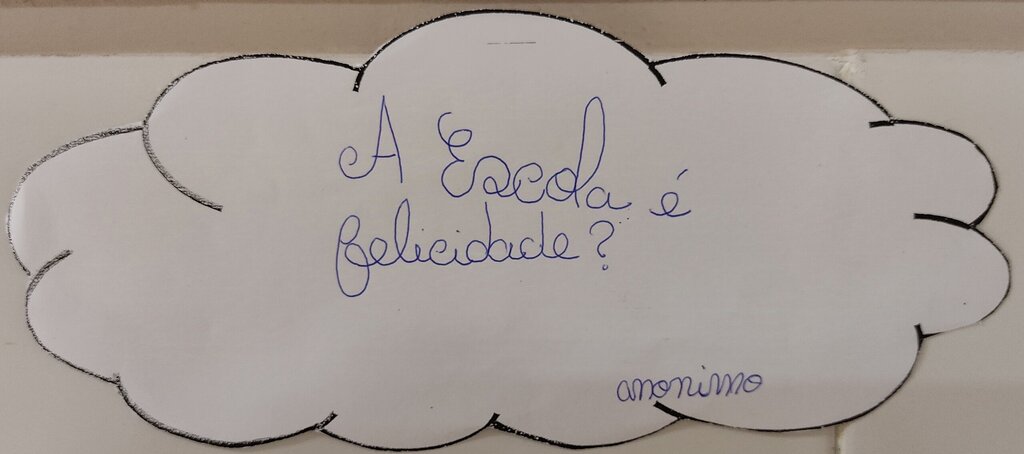 A Escola é
felicidade?
anonimo